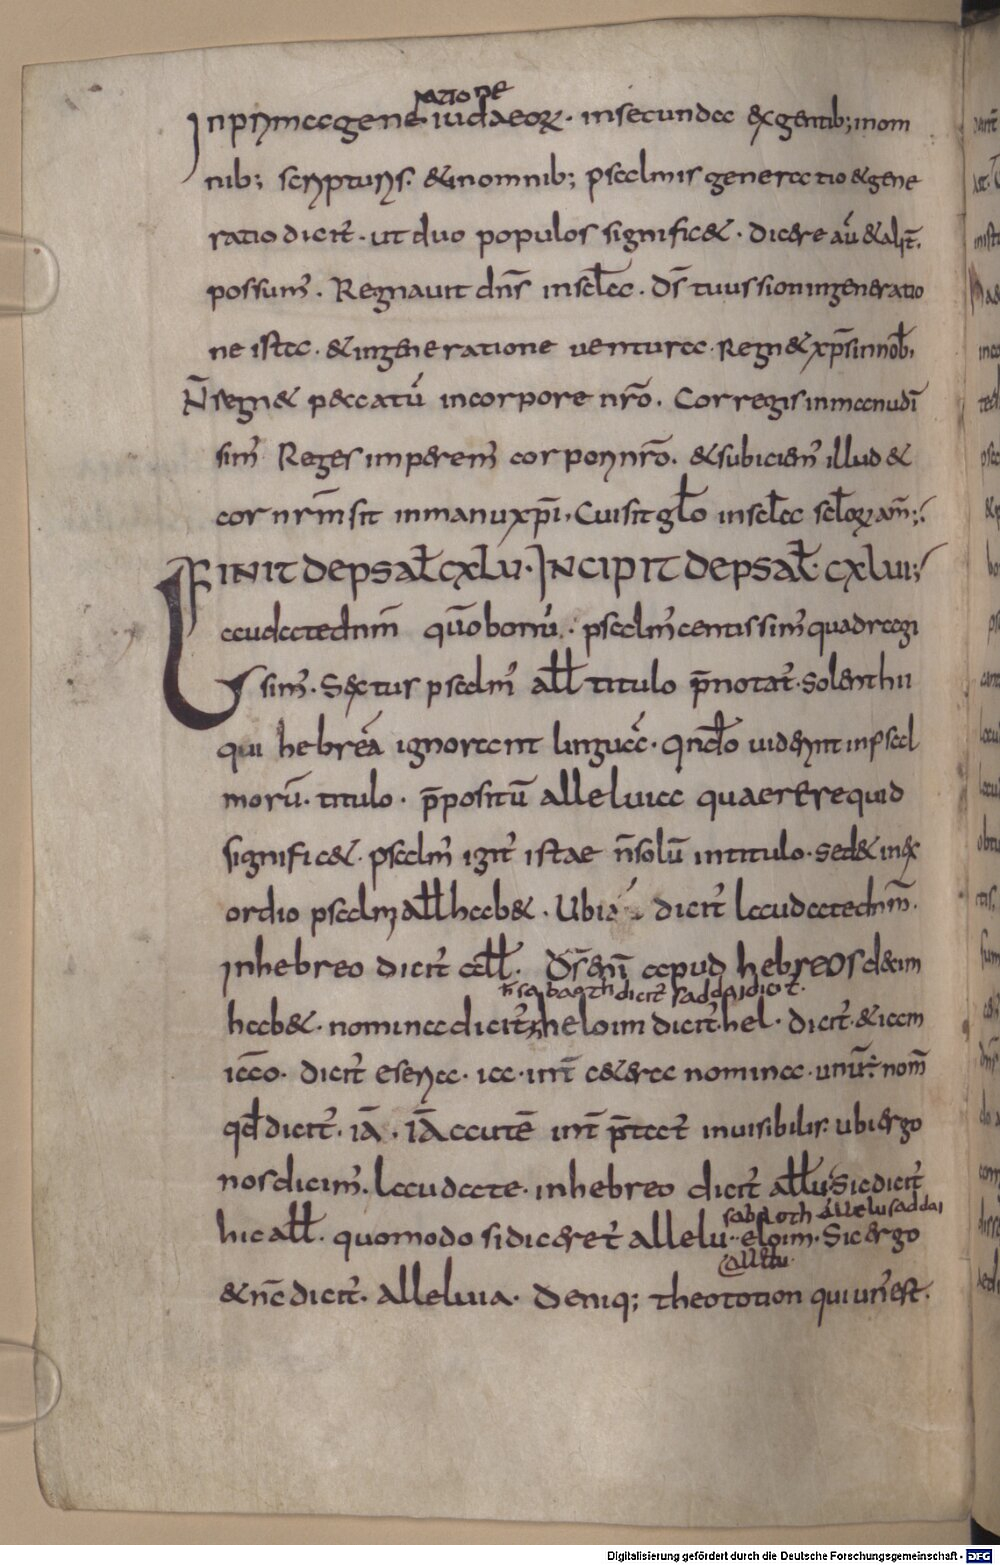 ratione
In prima gene iudaeoꝝ. in secunda ex gentib; in om
nib; scripturis. & in omnib; psalmis generatio & gene
ratio dicit̄. ut duo populos signific&. dicere aū & alit̄.
possum̄. Regnavit dn̄s in sc̄la. ds̄ tuus sion in generatio
ne ista. & in generatione ventura. Regn& xp̄s in nob̄.
N̄ regn& peccatū in corpore nr̄o. Cor regis in manu dī
sim̄. Reges imperem̄ corpori nr̄o. & subiciem̄ illud &
cor nr̄m sit in manu xp̄i. Cui sit gl̄o in sc̄la sc̄loꝝ am̄;
FINIT DE PSAL̄ CXLV. INCIPIT DE PSAL̄. CXLVI;
Laudate dn̄m qūo bonū. psalm̄ centissim̄ quadragi
sim̄. Sextus psalm̄ all̄ titulo p̄notat̄. Solent hii
qui hebrea ignorant lingua. Qn̄do viderint in psal
morū. titulo. p̄positū alleluia quaerere quid
signific&. psalm̄ igit̄ istae n̄ solū in titulo. sed & in ex
ordio psalmi all̄ hab&. Ubi dicit̄ laudate dn̄m.
in hebreo dicit̄ all̄. Ds̄ enī apud hebreos decim
h̄ sabaoth dicit̄ saddai dicit̄.
hab&. nomina dicit̄ heloim dicit̄. hel. dicit̄. & iam
iao. dicit̄ eseria. ia. int̄ cetera nomina. unū. nom̄
qd̄ dicit̄. iā. IĀ autē int̄ p̄tat̄ invisibilis. ubi ergo
nos dicim̄. laudate. in hebreo dicit̄ all̄u. Sic dicit̄
sabaoth allelu saddai
hic all̄. quomodo si diceret̄ allelu. eloim. Sic ergo
allelu.
& nc̄ dicit̄. alleluia. Deniq; theototion qui un̄ est.
Digitalisierung gefördert durch die Deutsche Forschungsgemeinschaft - DFG